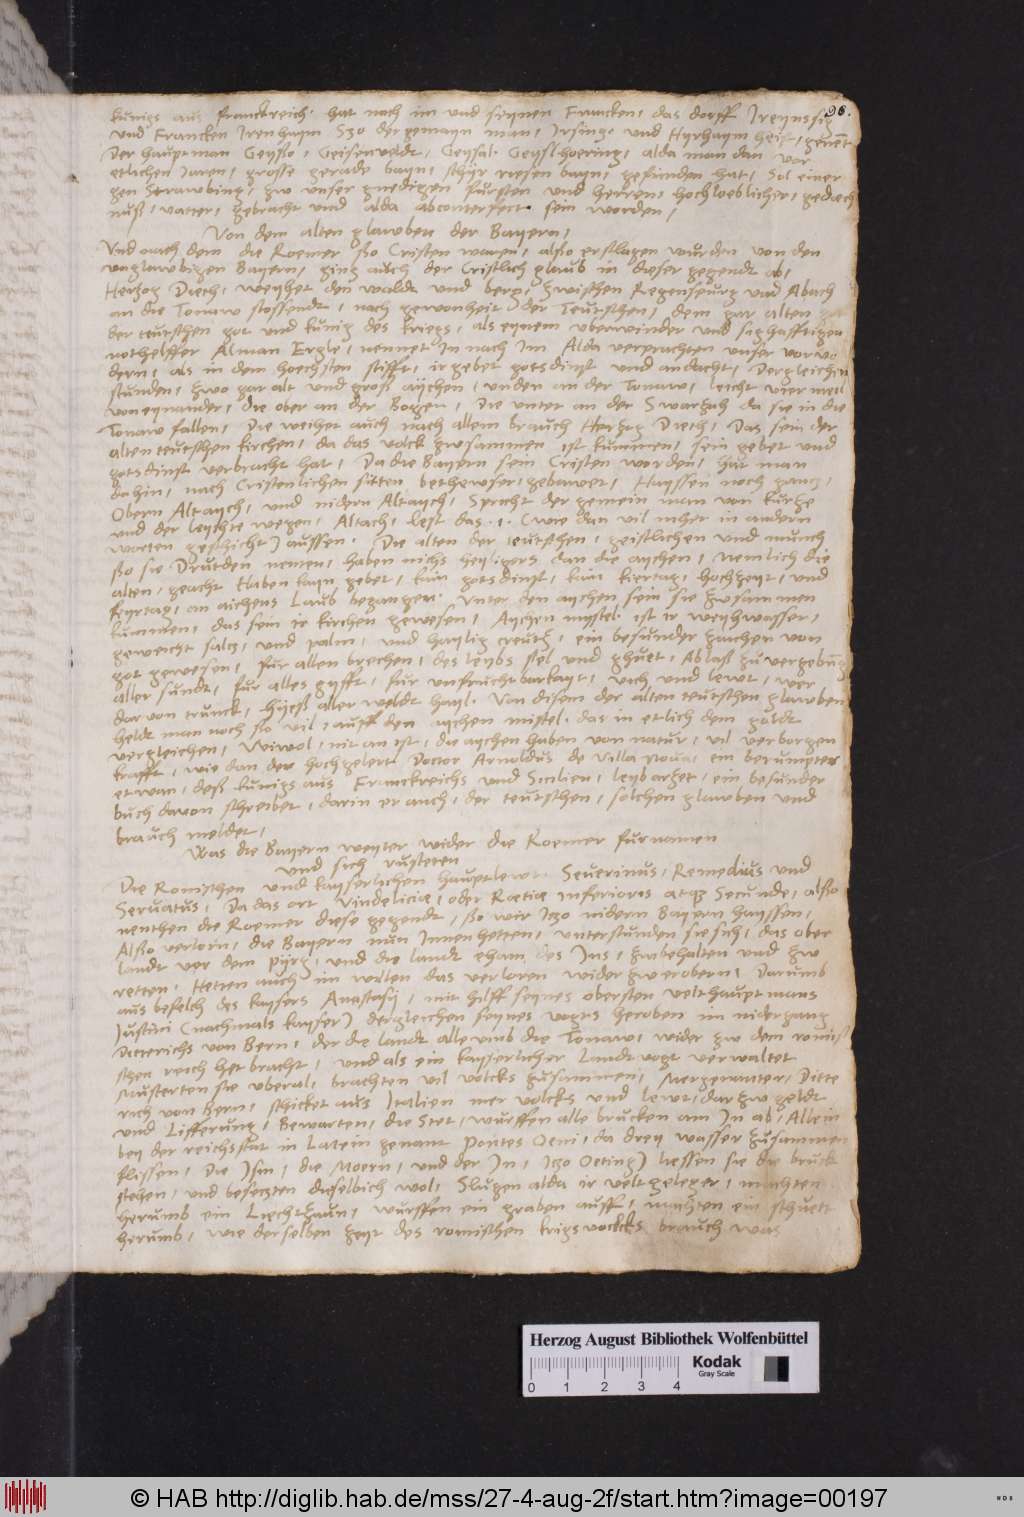 98.
kunigs aus franckreich. hat nach im und seynen Francken, das dorff Ireynssig
und Francken Irenhaym Szo der gemayn man, Irsing. und Hyrhaym heist, genent
Der hauptman Geysso, Geisenveldt, Geysal. Geyslhoering, alda man dan vor
etlichen Jaren, grosse gerade bayn, schyr riesen bayn, gefunden hat, Sol einer
gen Strawbing, zw unser gnedigen fursten und herren, hochloeblicher, gedech
nuß, vatter, gebracht und alda abconterfect. sein worden,
Von dem alten glawben der Bayern,
Und nach dem die Roemer ßo Cristen waren, alßo erstlagen wurden von den
unglawbigen Bayern, ging auch der Cristlich glaub in dieser gegendt ab,
Hertzog Diech, weyhet den waldt und berg, zwischen Regenspurg und Abach
an die Tonaw stossendt, nach gewonheit der Teutschen, dem gar alten
der teutschen got und kunig des kriegs, als eynem uberwinder und sighafftigen
nothelffer Alman Ergle, nennet In nach im Alda verprachten unser vorvo
dern, als in dem hoechsten stifft, ir gebet gotsdinst und andacht, Dergleichen
stunden, zwo gar alt und groß aychen, unden an der Tonaw, leicht vier meil
von eynander, die ober an der Bogen, die unter an der Swarzah da sie in die
Tonaw fallen, die weihet auch nach altem brauch Hertzog Diech, Das sein der
alten teutschen kirchen, da das volck zwsammen ist kummen, sein gebet und
gotsdinst verbracht hat, Da die Bayern sein Cristen worden, hat man
dahin, nach Cristenlichen sitten bethewser, gebawet, Hayssen noch
Obern Altaych, und nidern Altaych, Spricht der gemein man von kurtze
und der leychte wegen, Altach, lest das .i. (wie dan vil mher in andern
worten geschicht) aussen. Die alten der teutschen, geistlichen und munch
ßo sie Drutden nenen, haben nichs heyligers dan die aychen, nemlich die
alten, geacht Haben kayn gebet, kain gotsdinst, kain feirtag, hochzeyt, und
feyrtag, on aichens Laub begangen. Unter den aychen sein sie zwsammen
kummen, das sein ir kirchen gewesen, Aychen mystel. ist ir weyhwasser,
geweicht saltz, und palm, und haylig creutz, ein besunder zaichen von
got gewesen, fur allen brechen, des leybs sel und ghuet, Ablaß zu vergebung
aller sundt, fur alles gyfft, fur unfruchtbarkayt, vich und lewt, wer
dar von trunck, hyeß aller weldt hayl. Von disem der alten teutschen glawben
heldt man noch ßo vil, auff den aychen mistel. das in etlich dem goldt
vergleichen, Wiwol, nit an ist, die aychen haben von natur, vil verborgen
krafft, wie dan der hochgelert Doctor Arnoldus de Villa noua, ein berumpter
etwan, deß kunigs aus Franckreichs und Sicilien, leybarzet, ein besunder
buch davon schreibet, darin er auch, der teutschen, solchen glawben und
brauch meldet,
Was die Bayern weyter wider die Roemer furnamen
und sich rusteten
Die Romischen und kayserlichen hauptlewt. Seuerinus, Remedius und
Seruatus, Da das ort Vindeliciæ, oder Raetiæ inferiores atque Secunde, alßo
nenthen die Roemer diese gegendt, ßo wir Itzo nidern Bayern hayssen,
Alßo verlorn, die Bayern nun Innen hetten, unterstunden sie sich, das ober
landt vor dem pyrg, und die landt eham des Ins, zw behalten und zw
retten. Hetten auch im willen das verloren wider zw erobern, Darumb
aus befelch des kaysers Anastasij, mit hilff seynes obersten velthauptmans
Justini (nachmals kayser) dergleichen seynes vogts heroben im nidergang
Ditterichs von Bern, der die landt alle umb die Tonaw, wider zw dem romi
schen reich het bracht, und als ein kayserlicher Landtvogt verwaltet
Musterten sie uberal, brachten vil volcks zusammen, Mergemunter, Ditte
rich von Bern, schicket aus Italien mer volcks und lewt, dar zw geldt
und Lifferung, Bewarten, die Stet, wurffen alle brucken am In ab, Allein
bey der reichsstat in Latein genant Pontes Oeni, da drey wasser zusammen
flissen, die Isin, die Moern, und der In, Itzo Oeting) liessen sie die bruck
stehen, und besetzten dieselbich wol, Slugen alda ir veltgeleger, machten
herumb ein Liechtzaun, wurffen ein graben auff, machten ein schuett
herumb, wie derselben zeyt des romischen krigsvolcks brauch was
Herzog August Bibliothek Wolfenbüttel
Kodak
Gray Scale
0 1 2 3 4
© HAB http://diglib.hab.de/mss/27-4-aug-2f/start.htm?image=00197